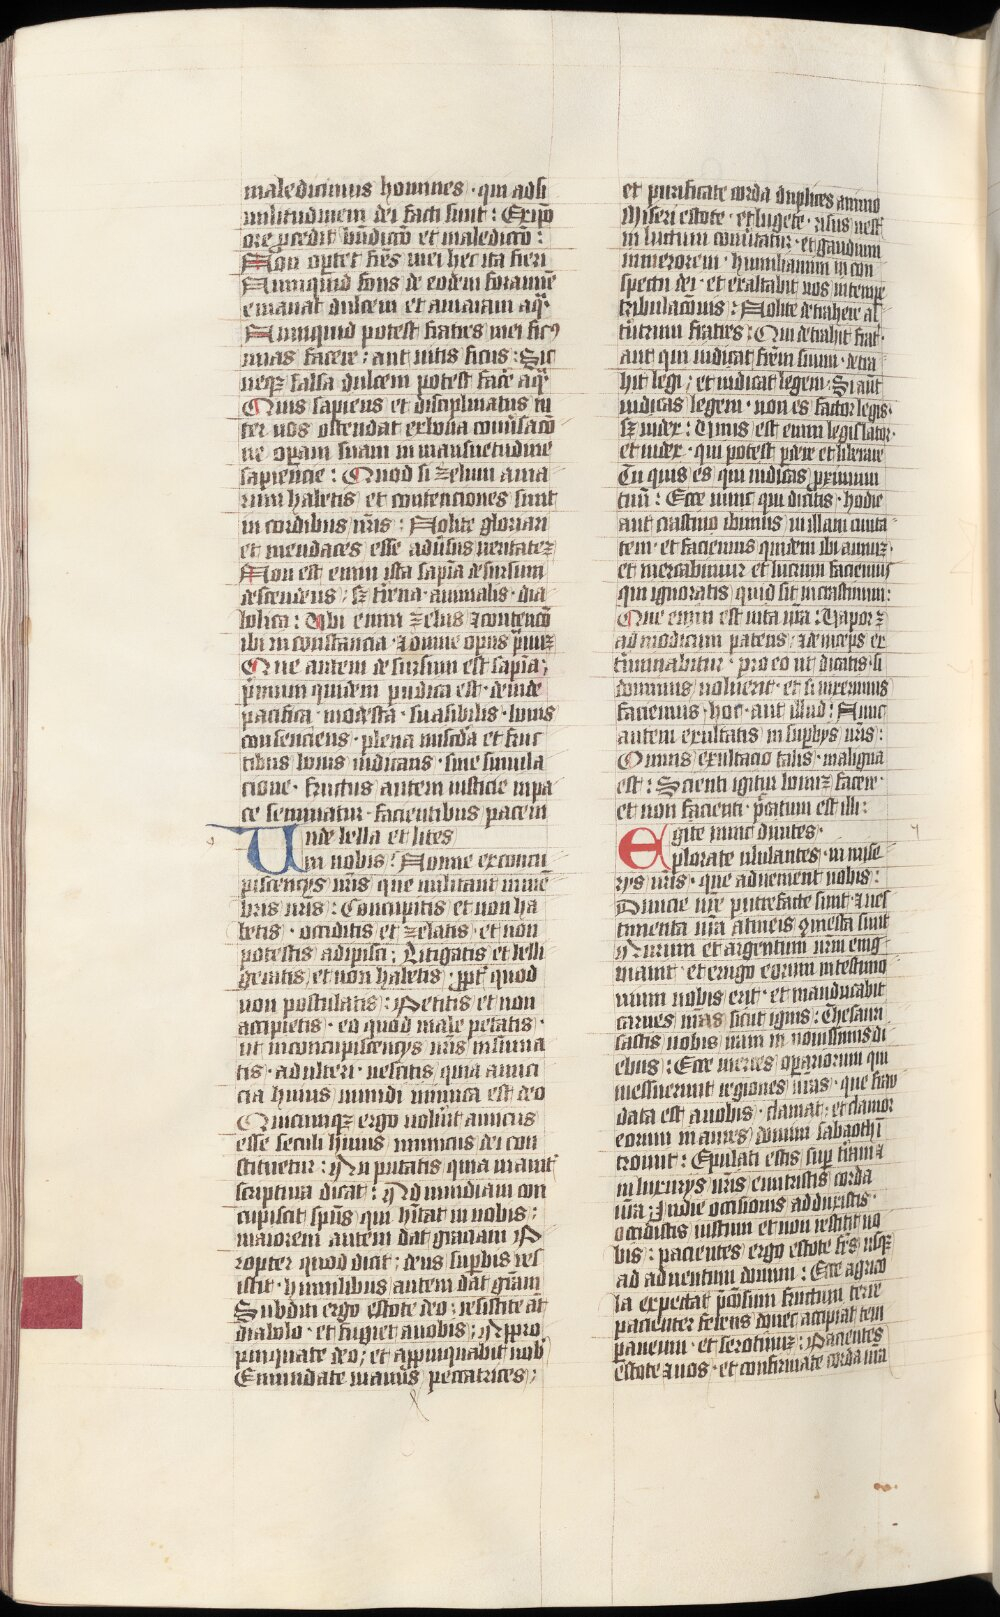 maledicimus homines · qui ad si
militudinem dei facti sunt : Ex ip̄o
ore ꝓcedit bn̄dictō et maledictō :
Non optet fr̄es mei hec ita fieri
Nunquid fons de eodem foramine
emanat dulcem et amaram aq̄ ·
Nunquid potest fratres mei ficꝰ
uuas facere : aut uitis ficus : Sic
neqꝫ salsa dulcem potest facē aq̄ ·
Quis sapiens et disciplinatus in
ter uos ostendat ex bona conūsaco
ne opam suam in mansuetudine
sapiencie : Quod si zelum ama
rum habetis et contenciones sunt
in cordibus ur̄is : Nolite gloriari
et mendaces esse adūsus ueritateꝫ
Non est enim ista sapīa desursum
descendens ; sꝫ terrena · animalis · dia
bolica : Ubi enim zelus ⁊ contencō
ibi inconstancia · ⁊ omne opus prauuꝫ
Que autem desursum est sapīa ;
primum quidem pudica est · deinde
pacifica · modesta · suasibilis · bonis
consenciens · plena mīscdā et fruc
tibus bonis iudicans · sine simula
cione · fructus autem iusticie in pa
ce seminatur · facientibus pacem
Unde bella et lites
in uobis : Nonne ex concu
piscencijs ur̄is que militant in mē
bris ur̄is : Concupitis et non ha
betis · occiditis et zelatis · et non
potestis adipisci ; Litigatis et belli
geratis , et non habetis · ꝓpt̄ quod
non postulatis : Petitis et non
accipietis · eo quod male petatis ·
ut in concupiscencijs ur̄is insuma
tis · adulteri · nescitis quia amici
cia huius mundi inimica est deo
Quicumqꝫ ergo uolūit amicus
esse seculi huius inimicus dei con
stituetur : An putatis quia inanit̄
scriptura dicat : Ad inuidiam con
cupiscit spūs qui hītat in uobis ;
maiorem autem dat graciam P
ropter quod dicit ; deus supbis res
istit · humilibus autem dat gr̄am
Subditi ergo estote deo ; resistite at̄
diabolo · et fugiet a uobis ; Appro
pinquate deo ; et appinquabit uob̄
Emundate manus peccatrices ;
et purificate corda duplices animo
Miseri estote · et lugete · risus uest̄
in luctum conūtatur · et gaudium
in merorem · humiliamini in con
spectu dei · et exaltabit uos in tempe
tribulacōnis : Nolite detrahere al
tūtrum fratres : Qui detrahit frat̄ ·
aut qui iudicat frēm suum · detra
hit legi ; et iudicat legem · Si aut̄
iudicas legem · non es factor legis ·
sꝫ iudex : Unus est enim legislator ·
et iudex · qui potest pdere et liberare
Tu quis es qui iudicas proximum
tuū : Ecce nunc qui dicitis · hodie
aut crastino ibimus in illam ciuita
tem · et faciemus quidem ibi annuꝫ ·
et mercabimur et lucrum faciemus
qui ignoratis quid sit in crastinum :
Que enim est uita ur̄a : Uapor ē
ad modicum parens ; ⁊ deinceps ex
tūminabitur · pro eo ut dicatis · si
dominus uoluerit · et si uixerimus
faciemus · hoc · aut illud : Nunc
autem exultatis in supbijs ur̄is :
Omnis exultacio talis · maligna
est : Scienti igitur bonuꝫ facere ·
et non facienti · pccatum est illi :
Egite nunc diuites ·
plorate ululantes · in mise
rijs ur̄is · que aduenient uobis :
Diuicie ur̄e putrefacte sunt · ⁊ ues
timenta ur̄a a tineis ꝯmesta sunt
Aurum et argentum ur̄m erug
inauit · et erugo eorum in testimo
nium uobis erit · et manducabit
carnes ur̄as sicut ignis : Thesauri
sastis uobis iram in nouissimis di
ebus : Ecce merces opariorum qui
messuerunt regiones ur̄as · que frau
data est a uobis · clamat ; et clamor
eorum in aures domini sabaoth ī
troiuit : Epulati estis sup tr̄am ⁊
in luxurijs ur̄is enutristis corda
ur̄a ; In die occisionis adduxistis ·
occidistis iustum et non restitit uo
bis : pacientes ergo estote fr̄es usqꝫ
ad aduentum domini : Ecce agrico
la expectat p̄ciosum fructum terre
pacienter ferens donec accipiat tem
paneum · et serotinuꝫ : Pacientes
estote ⁊ uos · et confirmate corda ur̄a